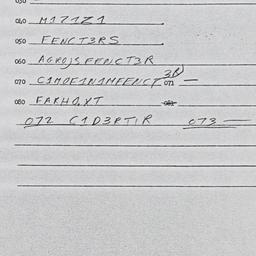 040 M171Z1
050 FENCT3RS
060 AGROJSFENCT3R
070 C1MOE1N1MFENCT3R 071 —
080 FARHO,XT 081
072 C1D3RT1R 073 —